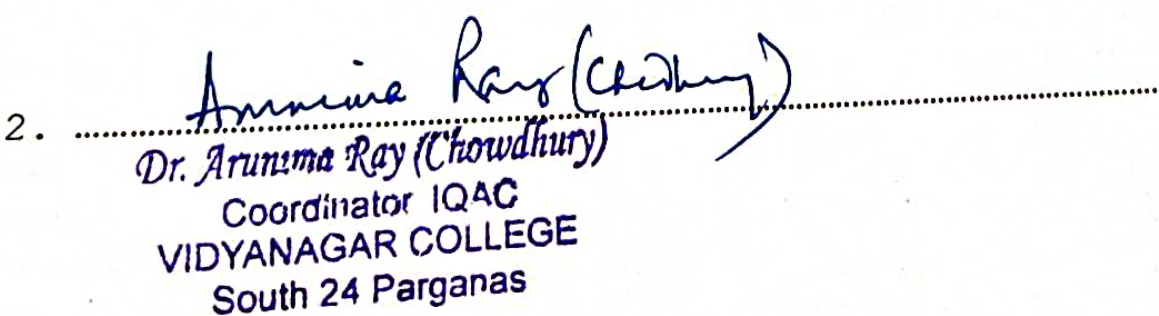 Arunima Ray (Chowdhury)
2. ........................................................................
Dr. Arunima Ray (Chowdhury)
Coordinator IQAC
VIDYANAGAR COLLEGE
South 24 Parganas